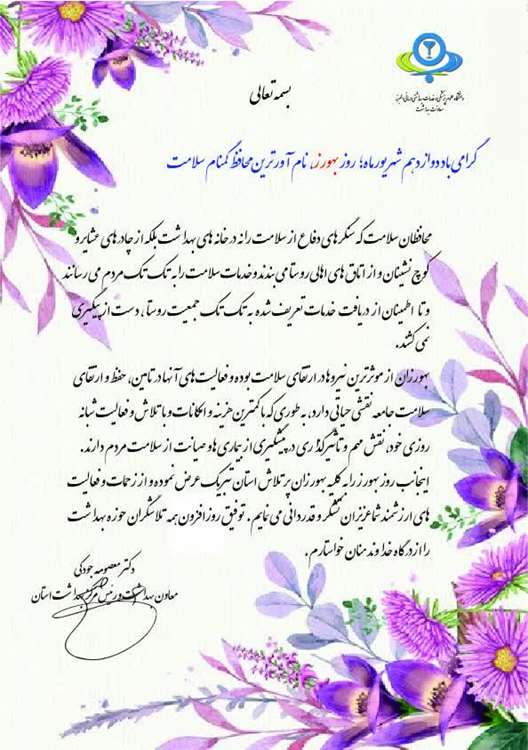 دانشگاه علوم پزشکی و خدمات بهداشتی درمانی البرز
معاونت بهداشت
بسمه تعالی
گرامی باد دوازدهم شهریور ماه؛ روز بهورز، نام آورترین محافظ گمنام سلامت
محافظان سلامت که سنگرهای دفاع از سلامت را نه در خانه های بهداشت بلکه از چادرهای عشایر و
کوچ نشینان و از اتاق های اهالی روستا می بندند و خدمات سلامت را به تک تک مردم می رسانند
و تا اطمینان از دریافت خدمات تعریف شده به تک تک جمعیت روستا، دست از پیگیری
نمی کشند.
بهورزان از موثرترین نیروها در ارتقای سلامت بوده و فعالیت های آنها در تامین، حفظ و ارتقای
سلامت جامعه نقشی حیاتی دارد، به طوری که با کمترین هزینه و امکانات و با تلاش و فعالیت شبانه
روزی خود، نقش مهم و تاثیرگذاری در پیشگیری از بیماری ها و صیانت از سلامت مردم دارند.
اینجانب روز بهورز را به کلیه بهورزان پرتلاش استان تبریک عرض نموده و از زحمات و فعالیت
های ارزشمند شما عزیزان تشکر و قدردانی می نمایم. توفیق روزافزون همه تلاشگران حوزه بهداشت
را از درگاه خداوند منان خواستارم.
دکتر معصومه جودکی
معاون بهداشت و رئیس مرکز بهداشت استان